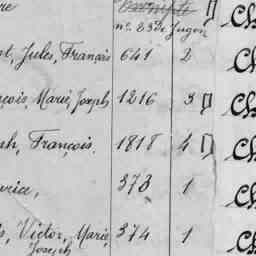 re
nº 23 de Jugon
st, Jules, Français 641 2 Ch
nçois, Marie, Joseph 1216 3 Ch
ph, François. 1818 4 Ch
urice, 373 1 Ch
is, Victor, Marie, 374 1 Ch
Joseph